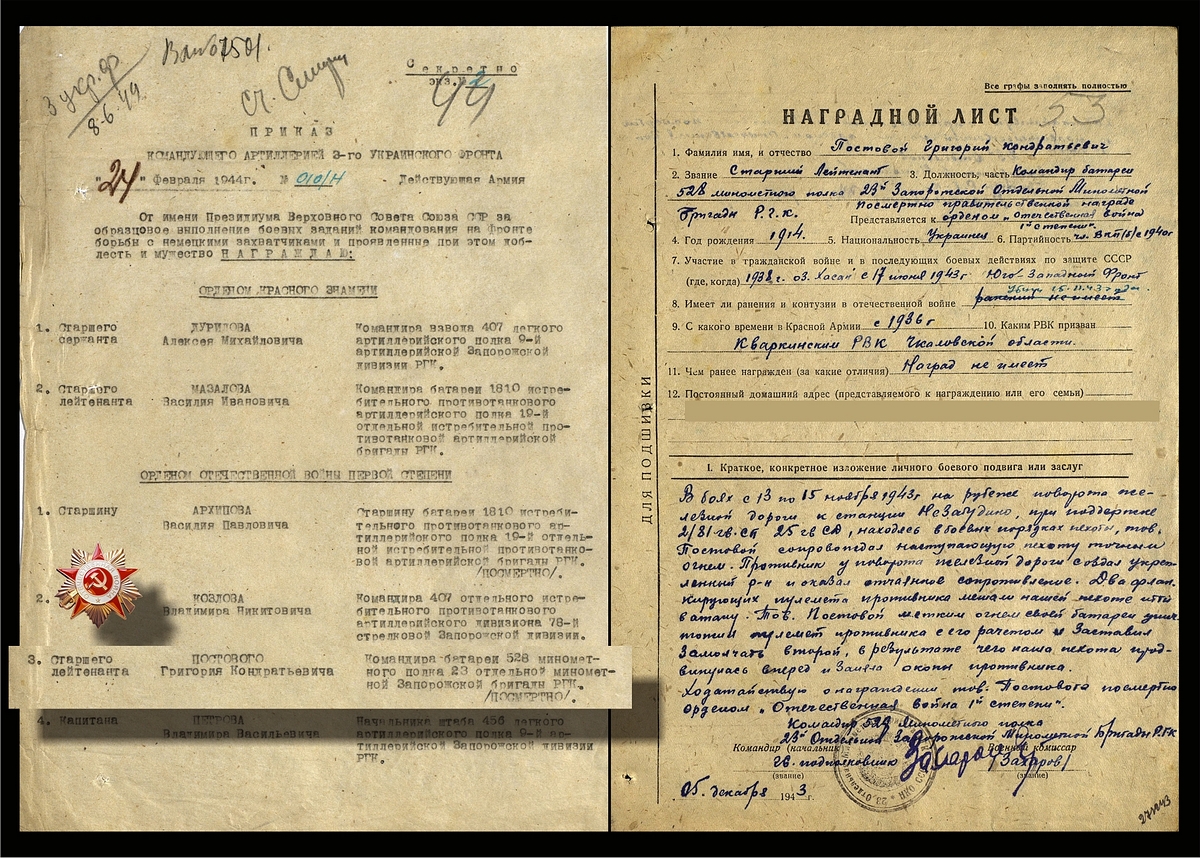 3 укр. фр
8-6/49
Секретно
экз. № 2
44
ПРИКАЗ
КОМАНДУЮЩЕГО АРТИЛЛЕРИЕЙ 3-го УКРАИНСКОГО ФРОНТА
"24" Февраля 1944г. № 010/Н - Действующая Армия
От имени Президиума Верховного Совета Союза ССР за
образцовое выполнение боевых заданий командования на Фронте
борьбы с немецкими захватчиками и проявленные при этом доб-
лесть и мужество НАГРАЖДАЮ:
ОРДЕНОМ КРАСНОГО ЗНАМЕНИ
1. Старшего ДУРИЛОВА Командира взвода 407 легкого
сержанта Алексея Михайловича артиллерийского полка 9-й
артиллерийской Запорожской
дивизии РГК.
2. Старшего МАЗАЛОВА Командира батареи 1810 истре-
лейтенанта Василия Ивановича бительного противотанкового
артиллерийского полка 19-й
отдельной истребительной про-
тивотанковой артиллерийской
бригады РГК.
ОРДЕНОМ ОТЕЧЕСТВЕННОЙ ВОЙНЫ ПЕРВОЙ СТЕПЕНИ
1. Старшину АРХИПОВА Старшину батареи 1810 истреби-
Василия Павловича тельного противотанкового ар-
тиллерийского полка 19-й отдель-
ной истребительной противотанко-
вой артиллерийской бригады РГК.
/ПОСМЕРТНО/.
2. КОЗЛОВА Командира 407 отдельного истре-
Владимира Никитовича бительного противотанкового
артиллерийского дивизиона 78-й
стрелковой Запорожской дивизии.
3. Старшего ПОСТОВОГО Командира батареи 528 миномет-
лейтенанта Григория Кондратьевича ного полка 23 отдельной миномет-
ной Запорожской бригады РГК.
/ПОСМЕРТНО/.
4. Капитана ПЕТРОВА Начальника штаба 456 легкого
Владимира Васильевича артиллерийского полка 9-й ар-
тиллерийской Запорожской дивизии
РГК.
Все графы заполнять полностью
53
НАГРАДНОЙ ЛИСТ
1. Фамилия имя, и отчество Постовой Григорий Кондратьевич
2. Звание Старший Лейтенант 3. Должность, часть Командир батареи
528 минометного полка 23й Запорожской Отдельной Минометной
Бригады Р.Г.К. Посмертно правительственной награде
Представляется к орденом "Отечественная война
1й степени".
4. Год рождения 1914. 5. Национальность Украинец 6. Партийность чл. ВКП(б) с 1940г
7. Участие в гражданской войне и в последующих боевых действиях по защите СССР
(где, когда) 1938 г. оз. Хасан с 17 июня 1943г Юго-Западный Фронт
Убит 15.11.43 года.
8. Имеет ли ранения и контузии в отечественной войне ранений не имеет
9. С какого времени в Красной Армии с 1936 г 10. Каким РВК призван
Кваркинским РВК Чкаловской области.
11. Чем ранее награжден (за какие отличия) Наград не имеет
12. Постоянный домашний адрес (представляемого к награждению или его семьи)
ДЛЯ ПОДШИВКИ
I. Краткое, конкретное изложение личного боевого подвига или заслуг
В боях с 13 по 15 ноября 1943г на рубеже поворота же-
лезной дороги к станции Незабудино, при поддержке
2/81 гв. сп 25 гв СД, находясь в боевых порядках пехоты, тов.
Постовой сопровождал наступающую пехоту точным
огнем. Противник у поворота железной дороги создал укреп-
ленный р-н и оказал отчаянное сопротивление. Два флан-
кирующих пулемета противника мешали нашей пехоте итти
в атаку. Тов. Постовой метким огнем своей батареи унич-
тожил пулемет противника с его расчетом и заставил
замолчать второй, в результате чего наша пехота прод-
винулась вперед и заняла окопы противника.
Ходатайствую о награждении тов. Постовога посмертно
орденом "Отечественная война 1й степени".
Командир 529 Минометного полка
23й Отдельной Запорожской Минометной Бригады РГК
Командир (начальник Военный комиссар
Гв. подполковник /Захаров/
(звание) (звание)
05. декабря 1943 г.
271243